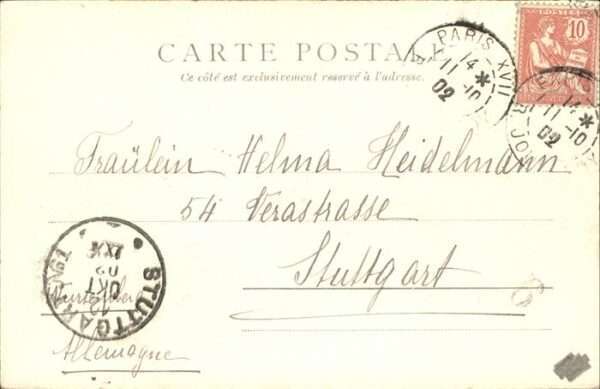 CARTE POSTALE
Ce côté est exclusivement reservé à l'adresse.
POSTES
10
PARIS XVII
14 *
11 -10
02
14 *
11 -10
02
Fräulein Helma Heidelmann
54 Verastrasse
Stuttgart
STUTTGART
12
OKT
02
Allemagne